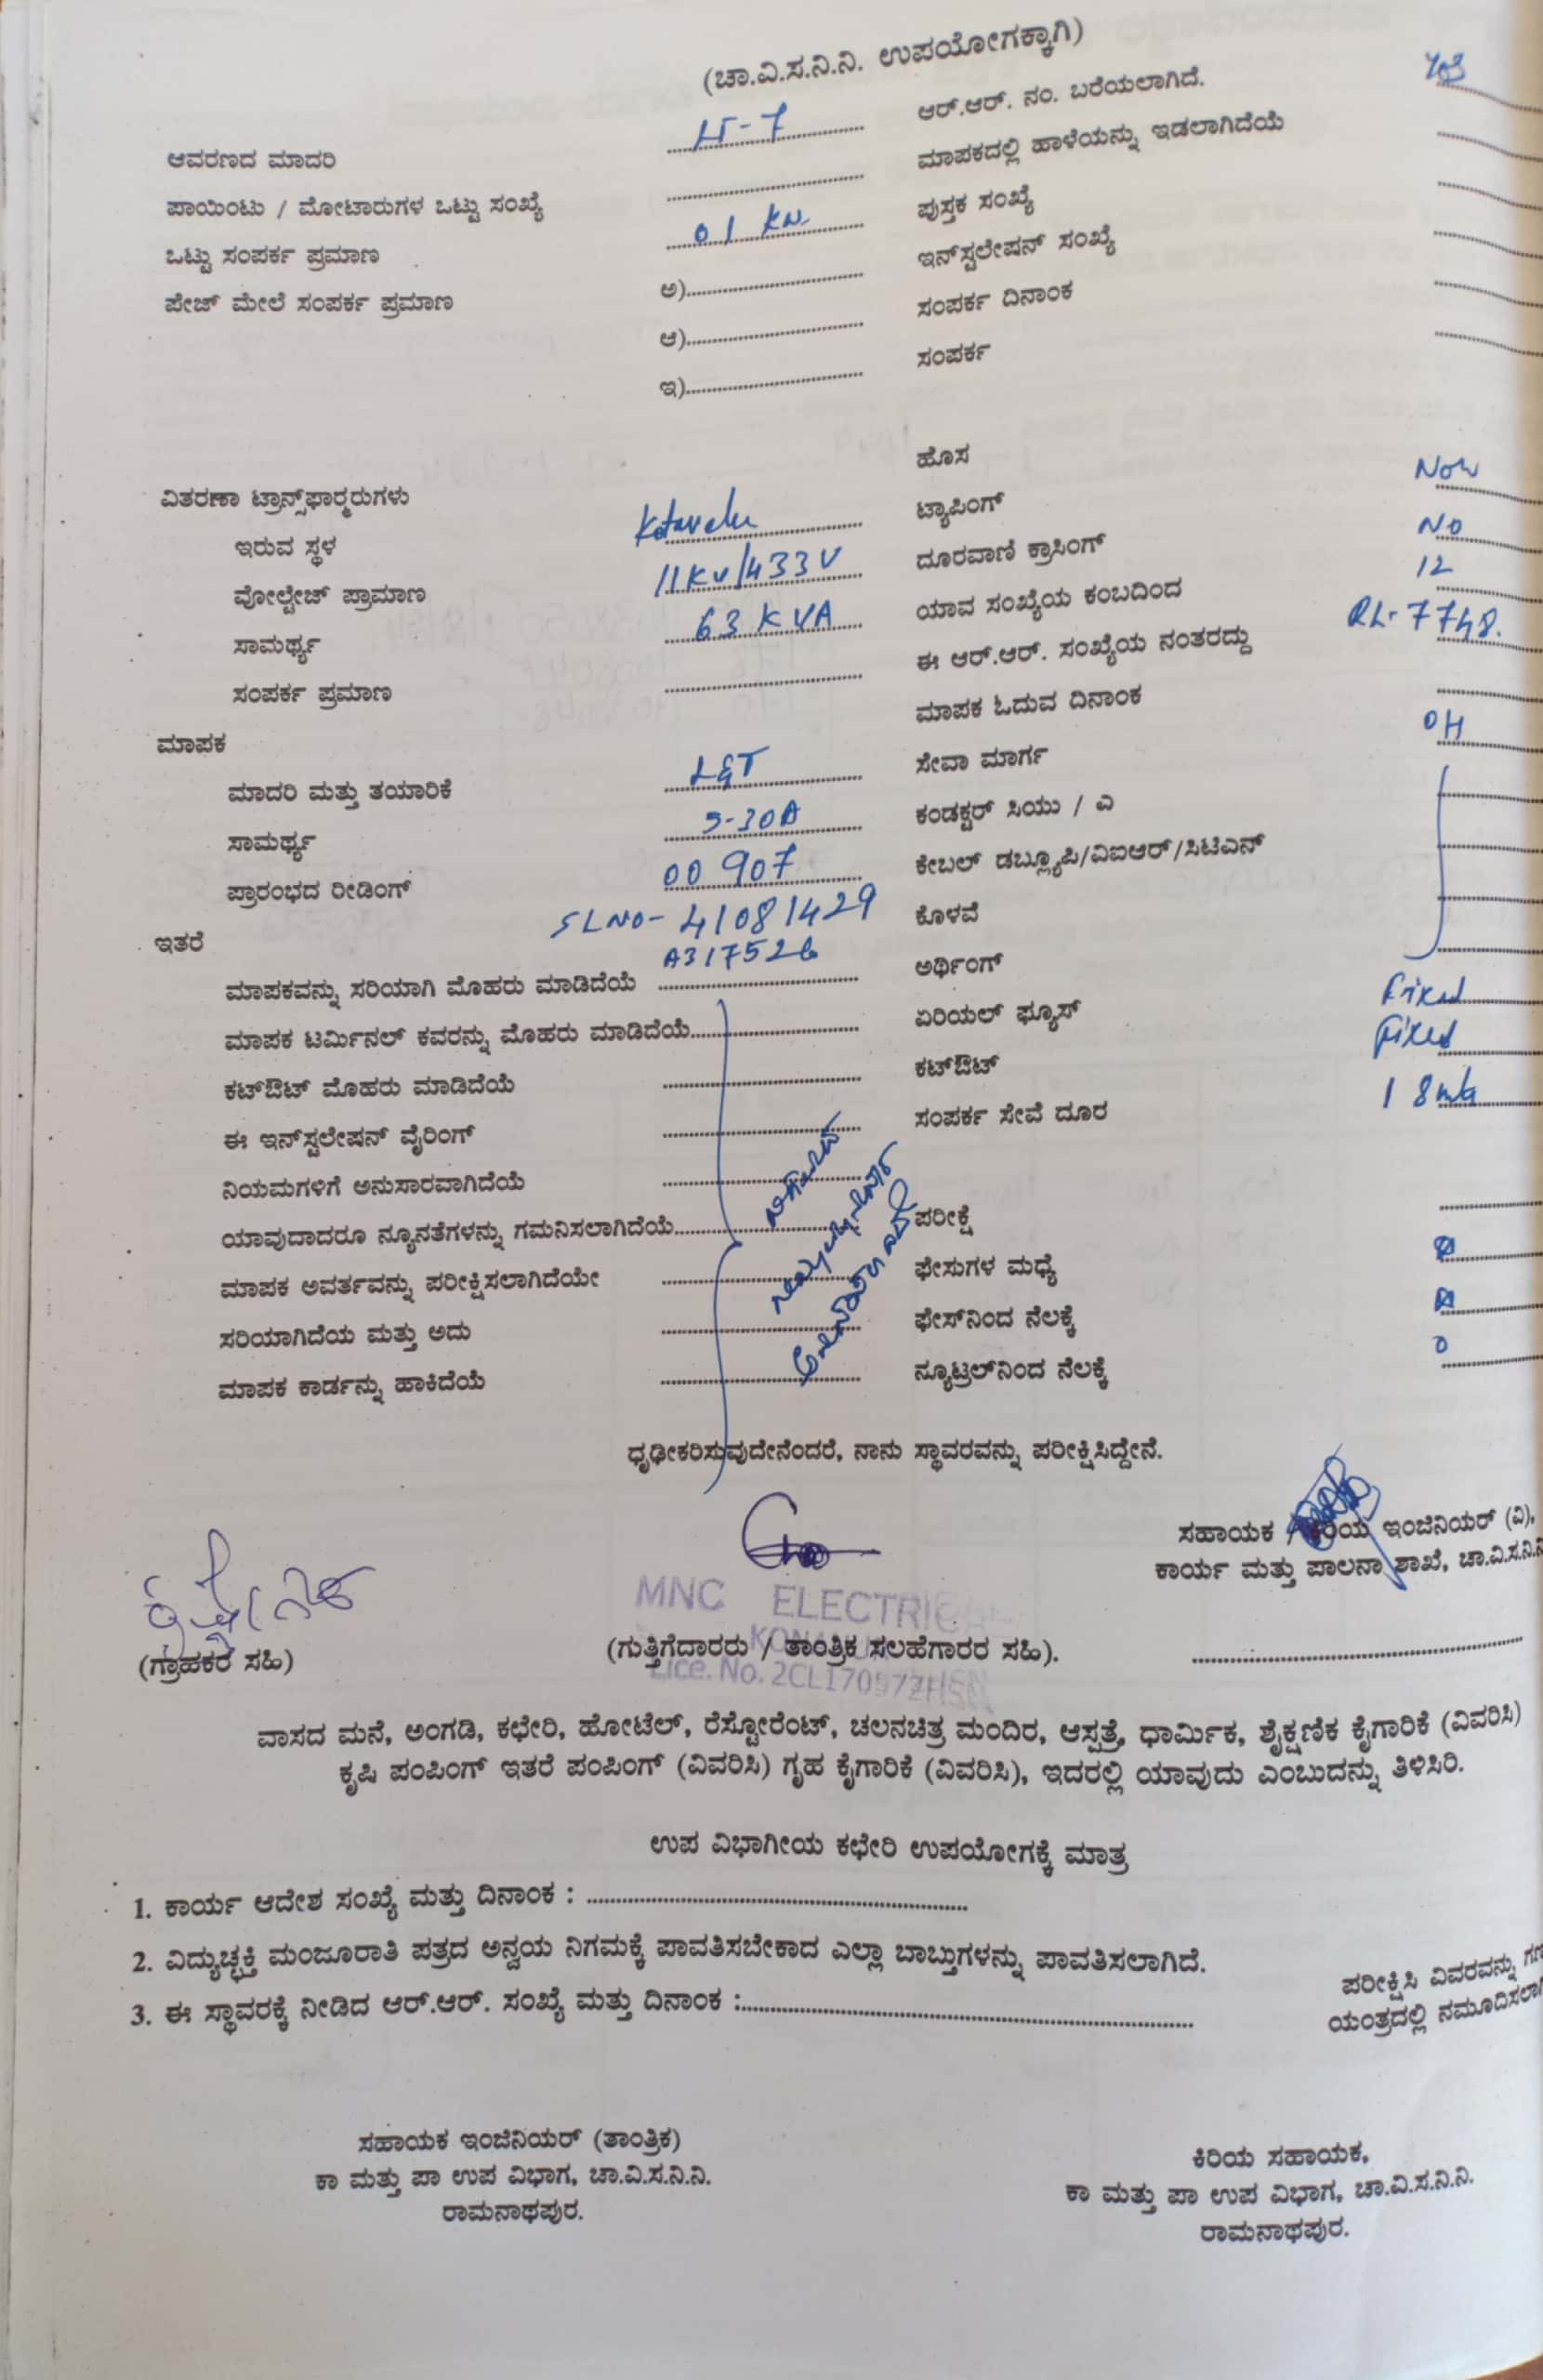 (ಚಾ.ವಿ.ಸ.ನಿ.ನಿ. ಉಪಯೋಗಕ್ಕಾಗಿ)
ಆವರಣದ ಮಾದರಿ LT-7
ಪಾಯಿಂಟು / ಮೋಟಾರುಗಳ ಒಟ್ಟು ಸಂಖ್ಯೆ
ಒಟ್ಟು ಸಂಪರ್ಕ ಪ್ರಮಾಣ 01 KW
ಪೇಜ್ ಮೇಲೆ ಸಂಪರ್ಕ ಪ್ರಮಾಣ ಅ)
ಆ)
ಇ)
ಆರ್.ಆರ್. ನಂ. ಬರೆಯಲಾಗಿದೆ.
ಮಾಪಕದಲ್ಲಿ ಹಾಳೆಯನ್ನು ಇಡಲಾಗಿದೆಯೆ
ಪುಸ್ತಕ ಸಂಖ್ಯೆ
ಇನ್‌ಸ್ಟಲೇಷನ್ ಸಂಖ್ಯೆ
ಸಂಪರ್ಕ ದಿನಾಂಕ
ಸಂಪರ್ಕ
ವಿತರಣಾ ಟ್ರಾನ್ಸ್‌ಫಾರ್‍ಮರುಗಳು
ಇರುವ ಸ್ಥಳ
ವೋಲ್ಟೇಜ್ ಪ್ರಾಮಾಣ 11KV/433V
ಸಾಮರ್ಥ್ಯ 63 KVA
ಸಂಪರ್ಕ ಪ್ರಮಾಣ
ಮಾಪಕ
ಮಾದರಿ ಮತ್ತು ತಯಾರಿಕೆ L&T
ಸಾಮರ್ಥ್ಯ 5-30A
ಪ್ರಾರಂಭದ ರೀಡಿಂಗ್ 00907
SLNO- 41081429
ಇತರೆ
A317526
ಮಾಪಕವನ್ನು ಸರಿಯಾಗಿ ಮೊಹರು ಮಾಡಿದೆಯೆ
ಮಾಪಕ ಟರ್ಮಿನಲ್ ಕವರನ್ನು ಮೊಹರು ಮಾಡಿದೆಯೆ
ಕಟ್‌ಔಟ್ ಮೊಹರು ಮಾಡಿದೆಯೆ
ಈ ಇನ್‌ಸ್ಟಲೇಷನ್ ವೈರಿಂಗ್
ನಿಯಮಗಳಿಗೆ ಅನುಸಾರವಾಗಿದೆಯೆ
ಯಾವುದಾದರೂ ನ್ಯೂನತೆಗಳನ್ನು ಗಮನಿಸಲಾಗಿದೆಯೆ
ಮಾಪಕ ಅವರ್ತವನ್ನು ಪರೀಕ್ಷಿಸಲಾಗಿದೆಯೇ
ಸರಿಯಾಗಿದೆಯ ಮತ್ತು ಅದು
ಮಾಪಕ ಕಾರ್ಡನ್ನು ಹಾಕಿದೆಯೆ
ಹೊಸ
ಟ್ಯಾಪಿಂಗ್
ದೂರವಾಣಿ ಕ್ರಾಸಿಂಗ್ NO
ಯಾವ ಸಂಖ್ಯೆಯ ಕಂಬದಿಂದ 12
ಈ ಆರ್.ಆರ್. ಸಂಖ್ಯೆಯ ನಂತರದ್ದು RL-7748.
ಮಾಪಕ ಓದುವ ದಿನಾಂಕ
ಸೇವಾ ಮಾರ್ಗ OH
ಕಂಡಕ್ಟರ್ ಸಿಯು / ಎ
ಕೇಬಲ್ ಡಬ್ಲ್ಯೂಪಿ/ವಿಐಆರ್/ಸಿಟಿಎನ್
ಕೊಳವೆ
ಅರ್ಥಿಂಗ್
ಏರಿಯಲ್ ಫ್ಯೂಸ್ Fixed
ಕಟ್‌ಔಟ್ Fixed
ಸಂಪರ್ಕ ಸೇವೆ ದೂರ
ಪರೀಕ್ಷೆ
ಫೇಸುಗಳ ಮಧ್ಯೆ
ಫೇಸ್‌ನಿಂದ ನೆಲಕ್ಕೆ
ನ್ಯೂಟ್ರಲ್‌ನಿಂದ ನೆಲಕ್ಕೆ 0
ಧೃಢೀಕರಿಸುವುದೇನೆಂದರೆ, ನಾನು ಸ್ಥಾವರವನ್ನು ಪರೀಕ್ಷಿಸಿದ್ದೇನೆ.
ಸಹಾಯಕ / ಕಿರಿಯ ಇಂಜಿನಿಯರ್ (ವಿ),
ಕಾರ್ಯ ಮತ್ತು ಪಾಲನಾ ಶಾಖೆ, ಚಾ.ವಿ.ಸ.ನಿ.ನಿ
MNC ELECTRICAL
(ಗ್ರಾಹಕರ ಸಹಿ)
(ಗುತ್ತಿಗೆದಾರರು / ತಾಂತ್ರಿಕ ಸಲಹೆಗಾರರ ಸಹಿ).
Lice. No. 2CL170972HSN
ವಾಸದ ಮನೆ, ಅಂಗಡಿ, ಕಛೇರಿ, ಹೋಟೆಲ್, ರೆಸ್ಟೋರೆಂಟ್, ಚಲನಚಿತ್ರ ಮಂದಿರ, ಆಸ್ಪತ್ರೆ, ಧಾರ್ಮಿಕ, ಶೈಕ್ಷಣಿಕ ಕೈಗಾರಿಕೆ (ವಿವರಿಸಿ)
ಕೃಷಿ ಪಂಪಿಂಗ್ ಇತರೆ ಪಂಪಿಂಗ್ (ವಿವರಿಸಿ) ಗೃಹ ಕೈಗಾರಿಕೆ (ವಿವರಿಸಿ), ಇದರಲ್ಲಿ ಯಾವುದು ಎಂಬುದನ್ನು ತಿಳಿಸಿರಿ.
ಉಪ ವಿಭಾಗೀಯ ಕಛೇರಿ ಉಪಯೋಗಕ್ಕೆ ಮಾತ್ರ
1. ಕಾರ್ಯ ಆದೇಶ ಸಂಖ್ಯೆ ಮತ್ತು ದಿನಾಂಕ :
2. ವಿದ್ಯುಚ್ಛಕ್ತಿ ಮಂಜೂರಾತಿ ಪತ್ರದ ಅನ್ವಯ ನಿಗಮಕ್ಕೆ ಪಾವತಿಸಬೇಕಾದ ಎಲ್ಲಾ ಬಾಬ್ತುಗಳನ್ನು ಪಾವತಿಸಲಾಗಿದೆ.
3. ಈ ಸ್ಥಾವರಕ್ಕೆ ನೀಡಿದ ಆರ್.ಆರ್. ಸಂಖ್ಯೆ ಮತ್ತು ದಿನಾಂಕ :
ಪರೀಕ್ಷಿಸಿ ವಿವರವನ್ನು
ಯಂತ್ರದಲ್ಲಿ ನಮೂದಿಸಲಾಗಿ
ಸಹಾಯಕ ಇಂಜಿನಿಯರ್ (ತಾಂತ್ರಿಕ)
ಕಾ ಮತ್ತು ಪಾ ಉಪ ವಿಭಾಗ, ಚಾ.ವಿ.ಸ.ನಿ.ನಿ.
ರಾಮನಾಥಪುರ.
ಕಿರಿಯ ಸಹಾಯಕ,
ಕಾ ಮತ್ತು ಪಾ ಉಪ ವಿಭಾಗ, ಚಾ.ವಿ.ಸ.ನಿ.ನಿ.
ರಾಮನಾಥಪುರ.